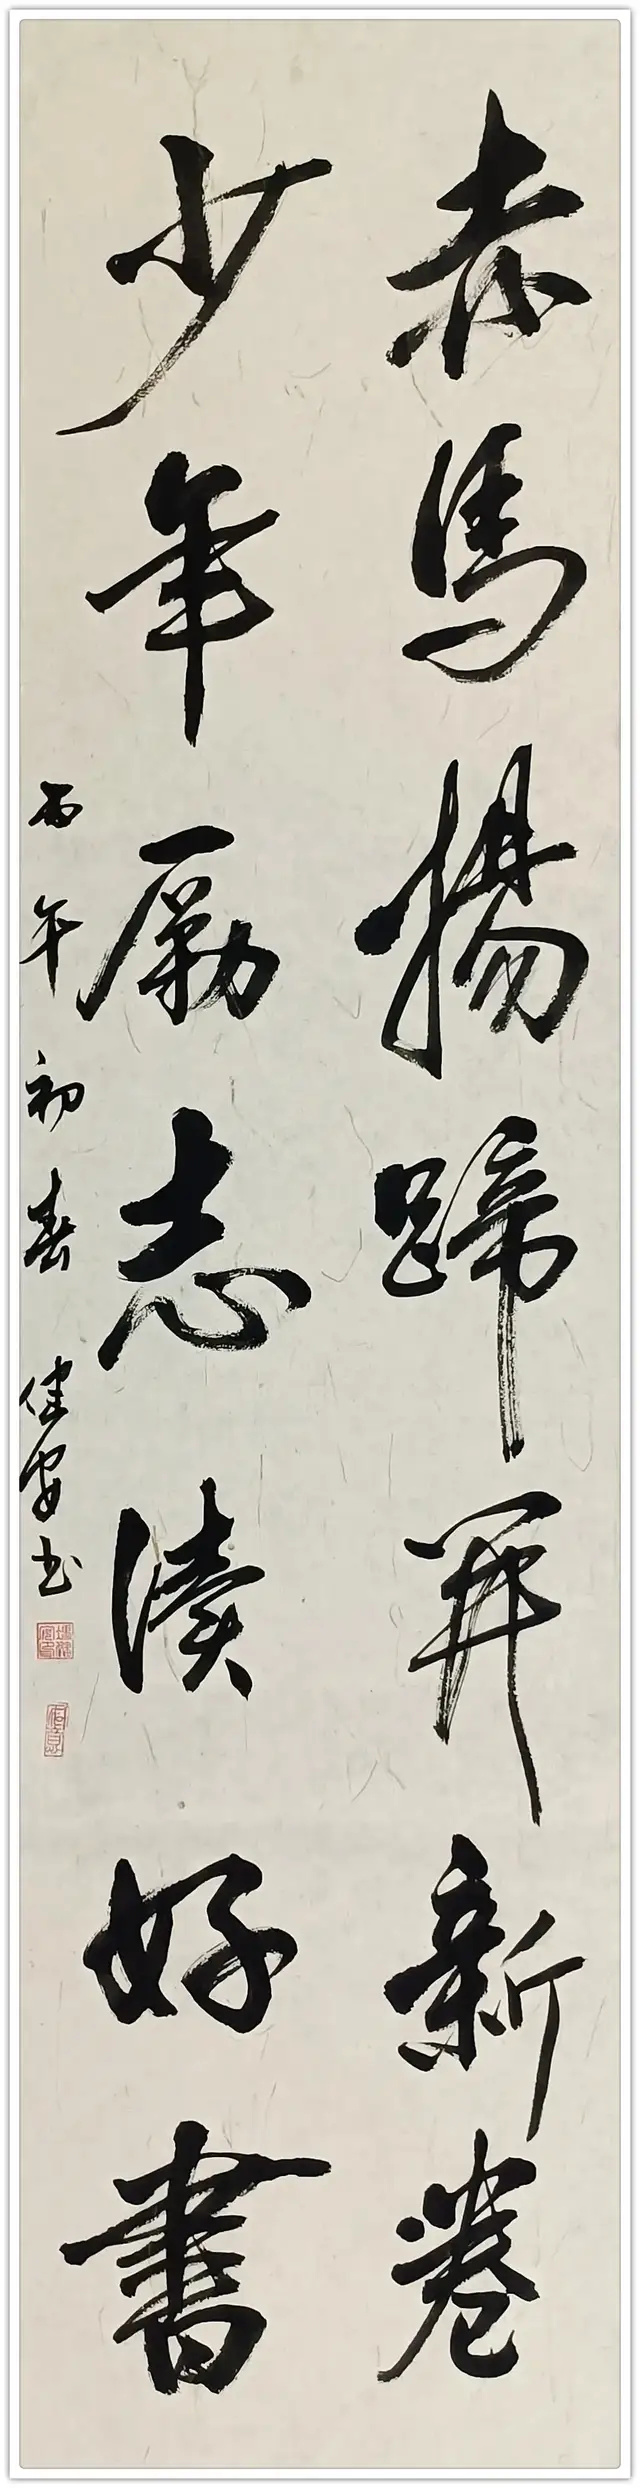 赤馬揚蹄開新卷
少年勵志讀好書
丙午初春 健安书